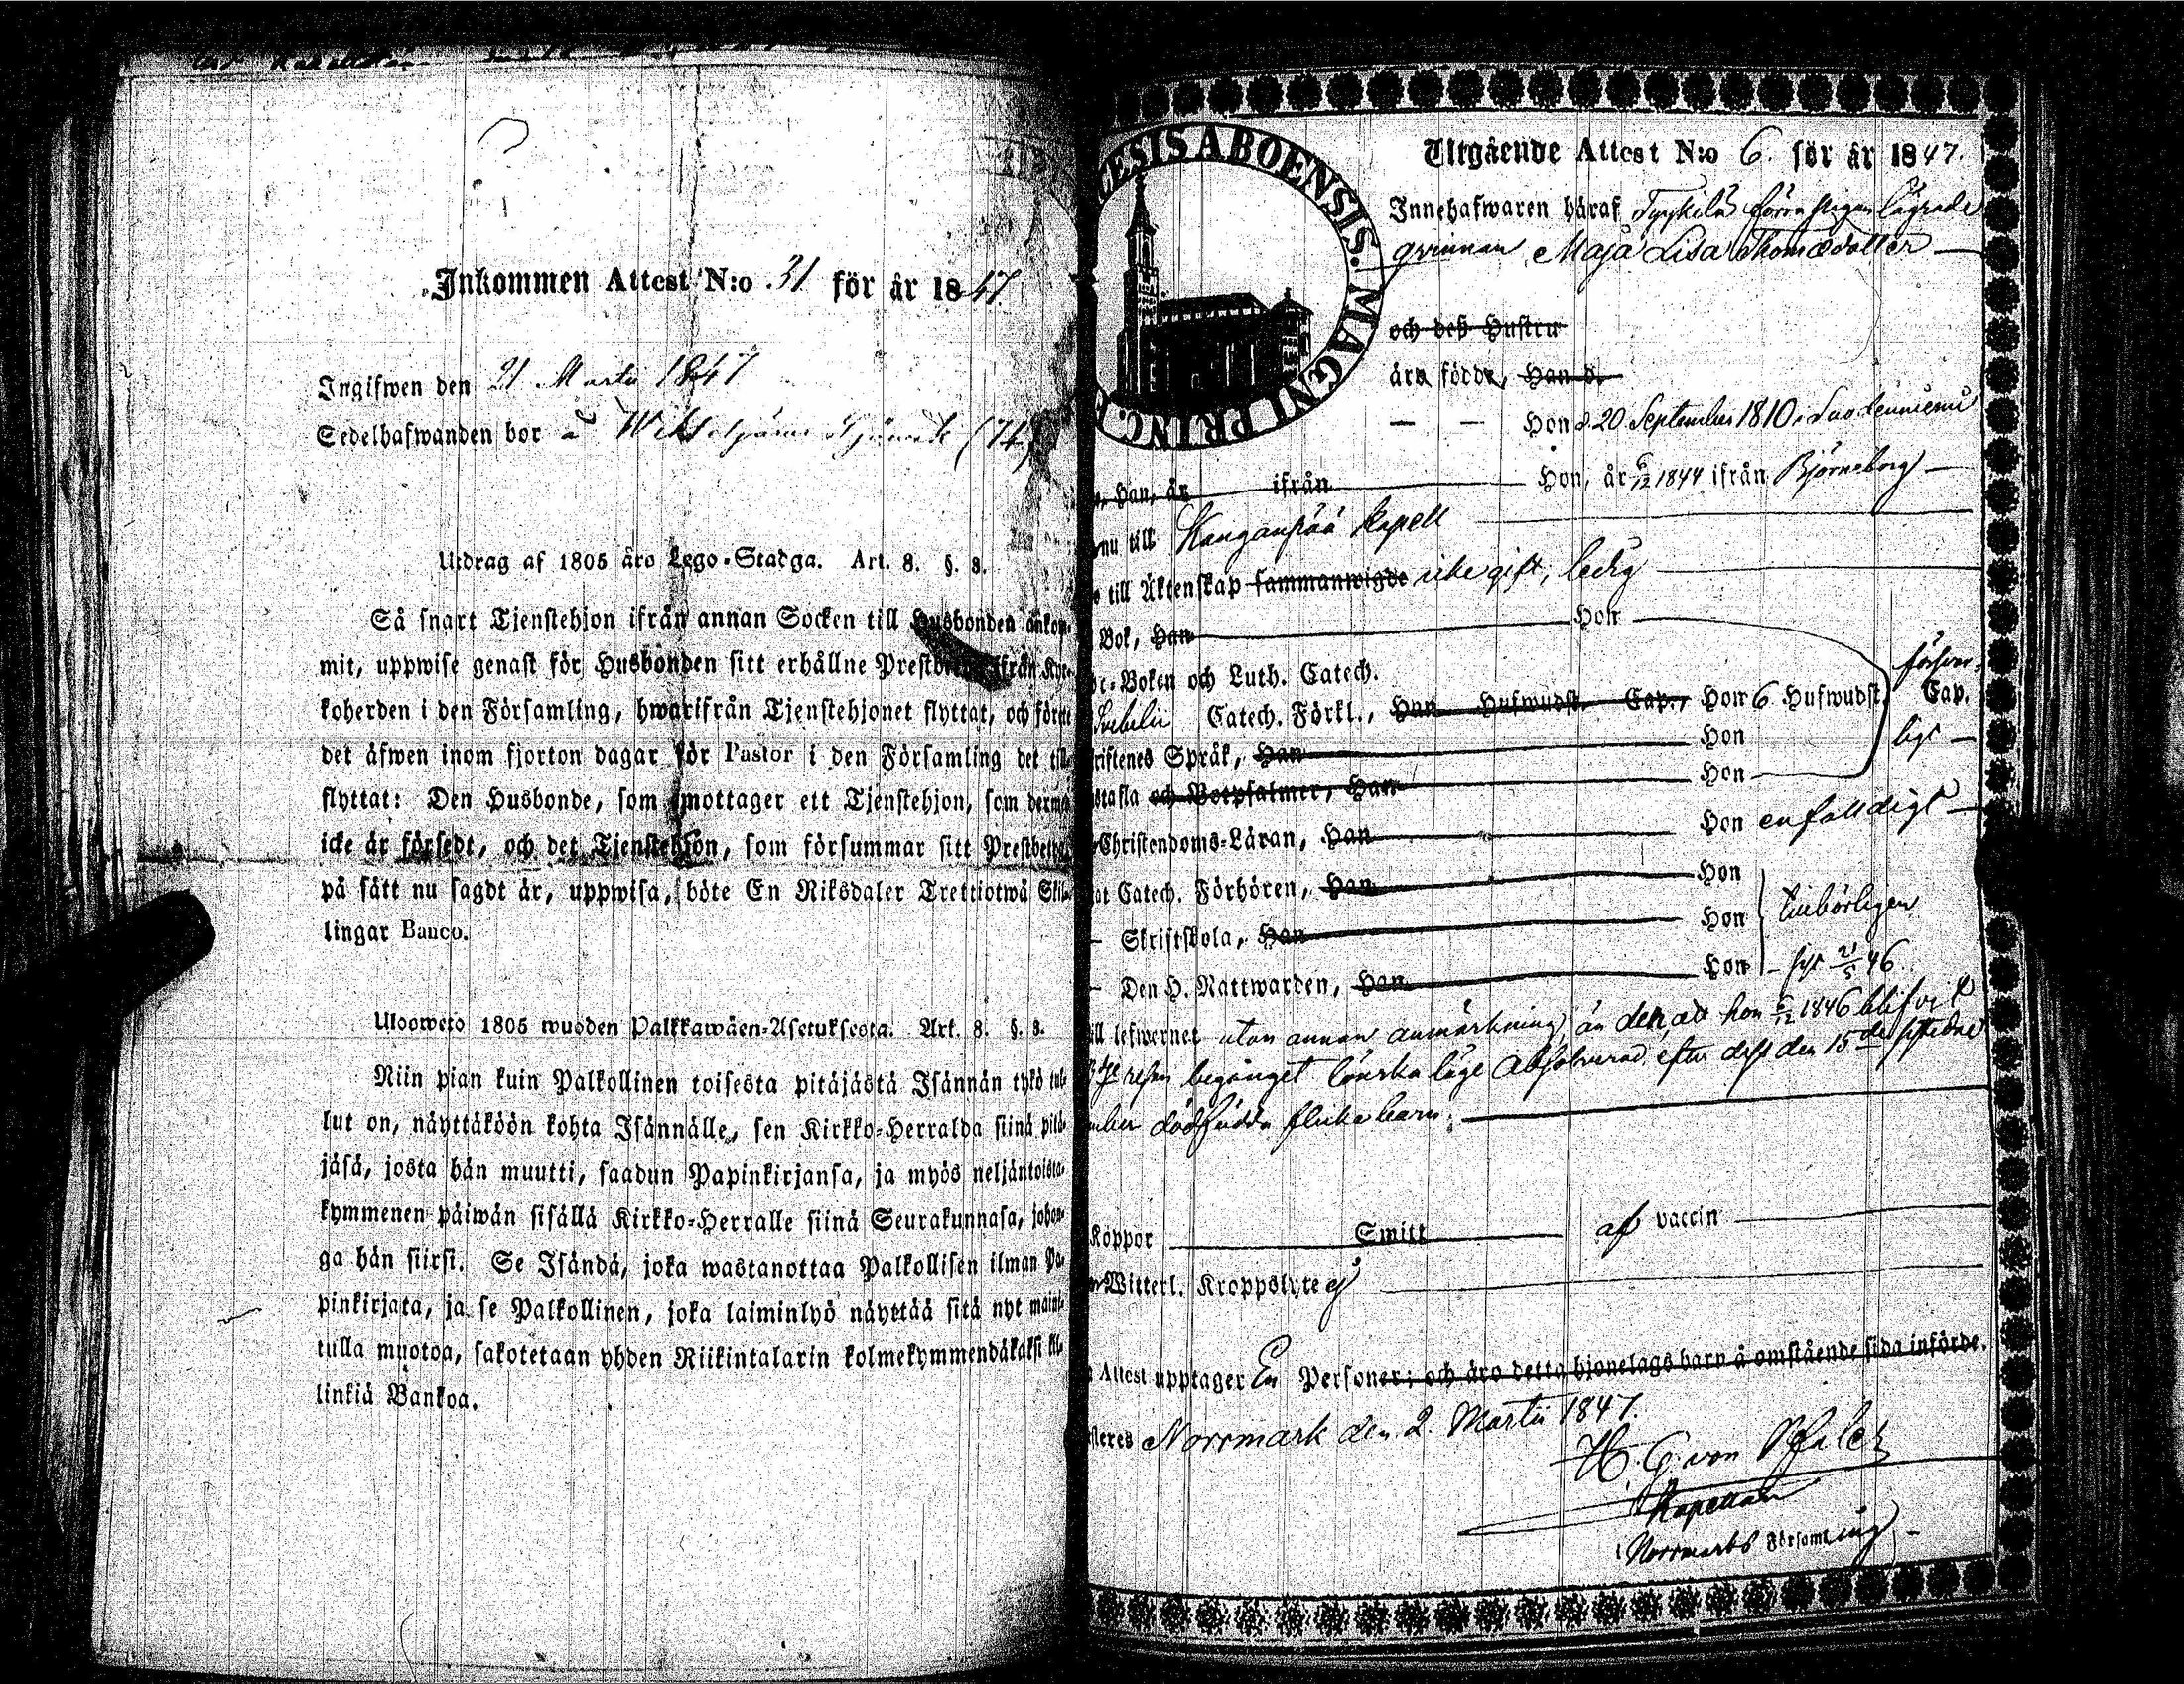 Inkommen Attest N:o 31 för år 1847.
Ingifwen den 21 Martii 1847
Sedelhafwanden bor
Utdrag af 1805 års Lego-Stadga. Art. 8. §. 8.
Så snart Tjenstehjon ifrån annan Socken till Husbonden ankom-
mit, uppwise genast för Husbonden sitt erhållne ifrån
koherden i den Församling, hwarifrån Tjenstehjonet flyttat, och
det äfwen inom fjorton dagar för Pastor i den Församling det
flyttat: Den Husbonde, som emottager ett Tjenstehjon, som
icke är försedt, och det Tjenstehjon, som försummar sitt
på sätt nu sagdt är, uppwisa, böte En Riksdaler Trettiotwå Skil-
lingar Banco.
Uloswето 1805 wuoden Palkkawäen-Asetuksesta. Art. 8. §. 8.
Niin pian kuin Palkollinen toisesta pitäjästä Isännän tykö tul-
lut on, näyttäköön kohta Isännälle, sen Kirkko-Herralda siinä pitä-
jäsä, josta hän muutti, saadun Papinkirjansa, ja myös neljäntoista-
kymmenen päiwän sisällä Kirkko-Herralle siinä Seurakunnasa, johon-
ga hän siirsi. Se Isändä, joka wastanottaa Palkollisen ilman Pa-
pinkirjata, ja se Palkollinen, joka laiminlyö näyttää sitä nyt mainit-
tulla muotoa, sakotetaan yhden Riikintalarin kolmekymmendäkaksi kil-
linkiä Bankoa.
CESIS ABOENSIS. MAGNI PRINC.
Utgående Attest N:o 6. för år 1847.
Innehafwaren häraf Tyykilä förra pigan lägrade
qvinnan Maja Lisa Thomædotter
och deß Hustru
äro födde, Han d.
Hon d. 20 September 1810,
Han, år ifrån Hon, år 6/12 1844 ifrån Björneborg
nu till Kanganpää Kapell
till Äktenskap sammanwigde icke gift, ledig
Bok, Han Hon
Boken och Luth. Catech. försvar-
Svebelii Catech. Förkl., Han Hufwudst. Cap., Hon 6 Hufwudst. Cap.
Språk, Han Hon ligt
tafla och Botpsalmer, Han Hon
Christendoms-Läran, Han Hon enfaldigt
Catech. Förhören, Han Hon
Skriftskola, Han Hon tillbörligen
Den H. Nattwarden, Han Hon sist 21/5 46.
till lefwernet utan annan anmärkning, än den, att hon 6/12 1846 blifvit
resan begånget lönska läge absolverad, efter dess den 15de
dödfödda flicke barn.
Koppor Smitt af vaccin
Witterl. Kroppslyte ej
Attest upptager En Personer; och äro detta hjonelags barn å omstående sida införde.
Norrmark den 2. Martii 1847.
H. G. von Pfaler
Kapellan
Norrmarks Församling